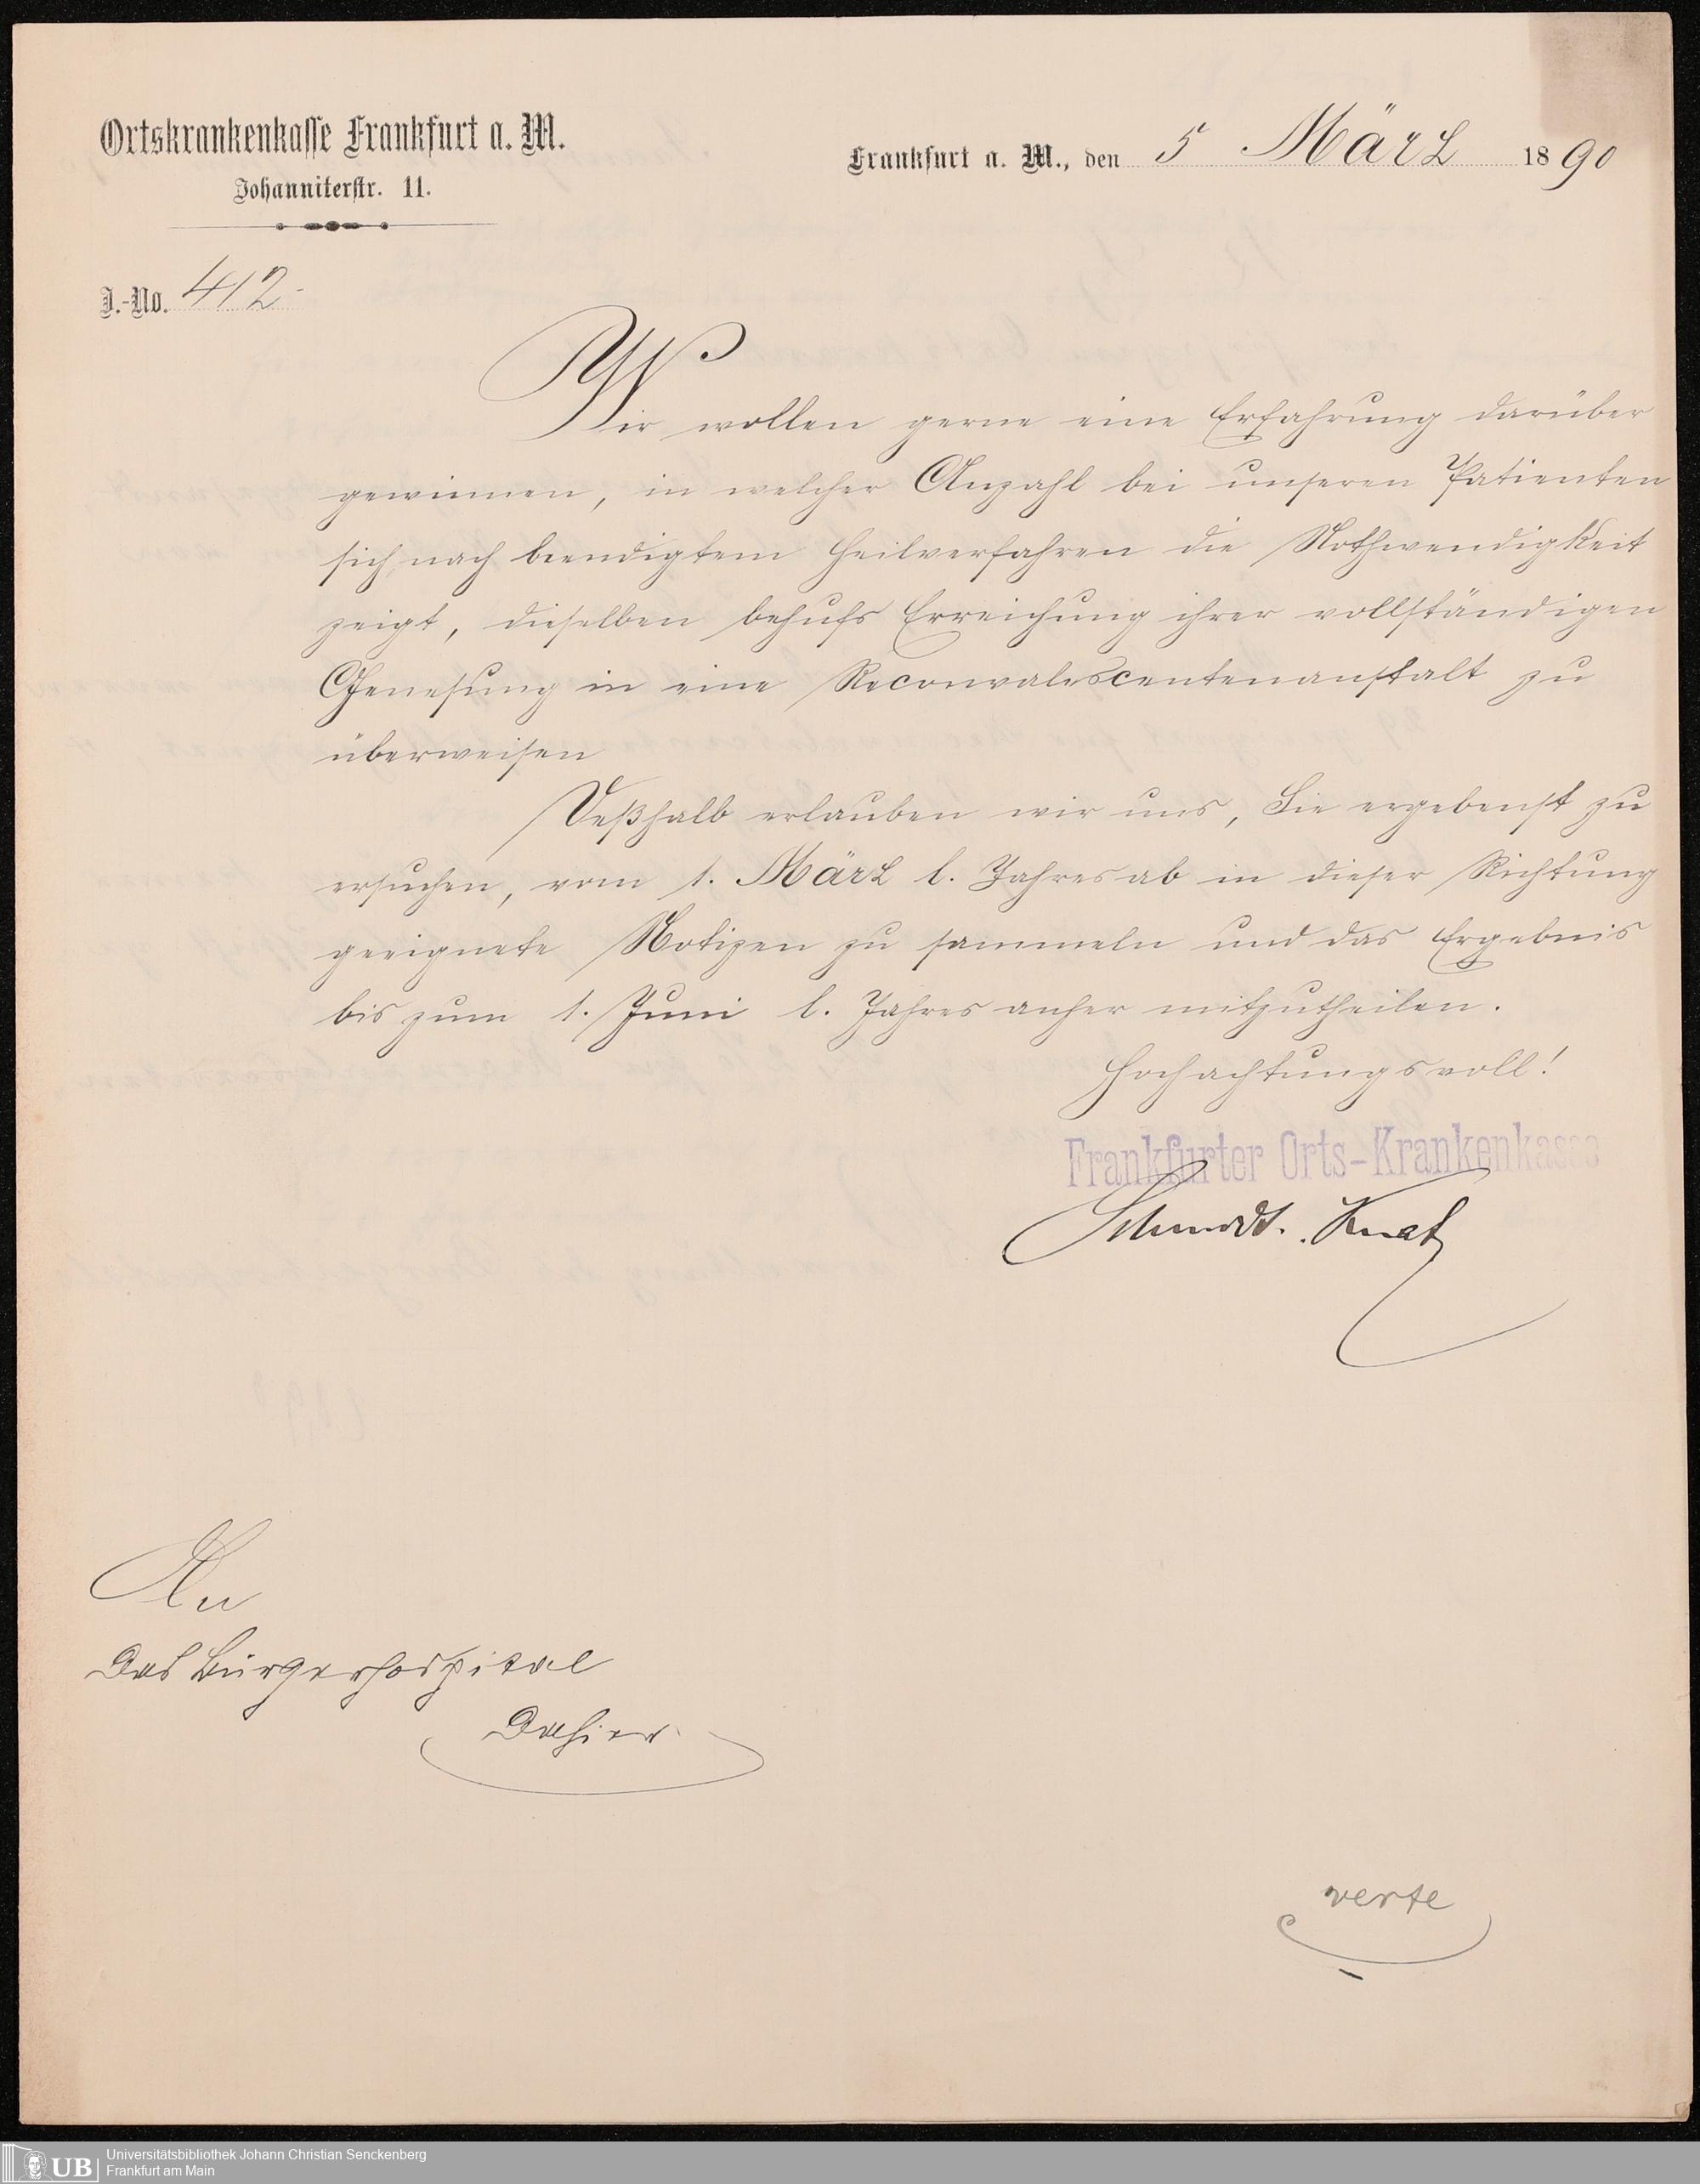 Ortskrankenkasse Frankfurt a. M.
Johanniterstr. 11.
Frankfurt a. M., den 5 März 1890
J.-No. 412-
Wir wollen gerne eine Erfahrung darüber
gewinnen, in welcher Anzahl bei unseren Patienten
sich nach beendigtem Heilverfahren die Nothwendigkeit
zeigt, dieselben behufs Erreichung ihrer vollständigen
Genesung in eine Reconvalescentenanstalt zu
überweisen
Deßhalb erlauben wir uns, Sie ergebenst zu
ersuchen, vom 1. März l. Jahres ab in dieser Richtung
geeignete Notizen zu sammeln und das Ergebnis
bis zum 1. Juni l. Jahres anher mitzutheilen.
Hochachtungsvoll!
Frankfurter Orts-Krankenkasse
An
das Bürgerhospital
Dahier
verte
UB
Universitätsbibliothek Johann Christian Senckenberg
Frankfurt am Main